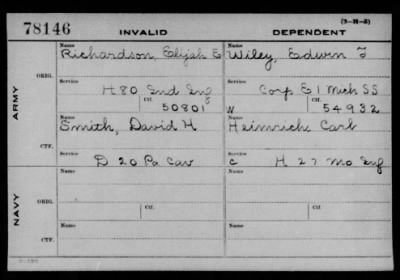 (3-H-5)
78146 INVALID DEPENDENT
Name Name
Richardson, Elijah E Wiley, Edwin F
ORIG.
Service Service
H 80 Ind Inf Corp E 1 Mich SS
Ctf. Ctf.
50801 W 54932
ARMY
Name Name
Smith, David H Heinrich Carl
CTF.
Service Service
D 20 Pa Cav C H 27 Mo Inf
Name Name
ORIG.
Ctf. Ctf.
NAVY
Name Name
CTF.